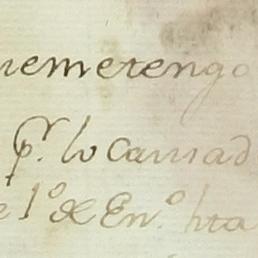 uemerengo
pr. lo Causad
e 1º de Enº. hta